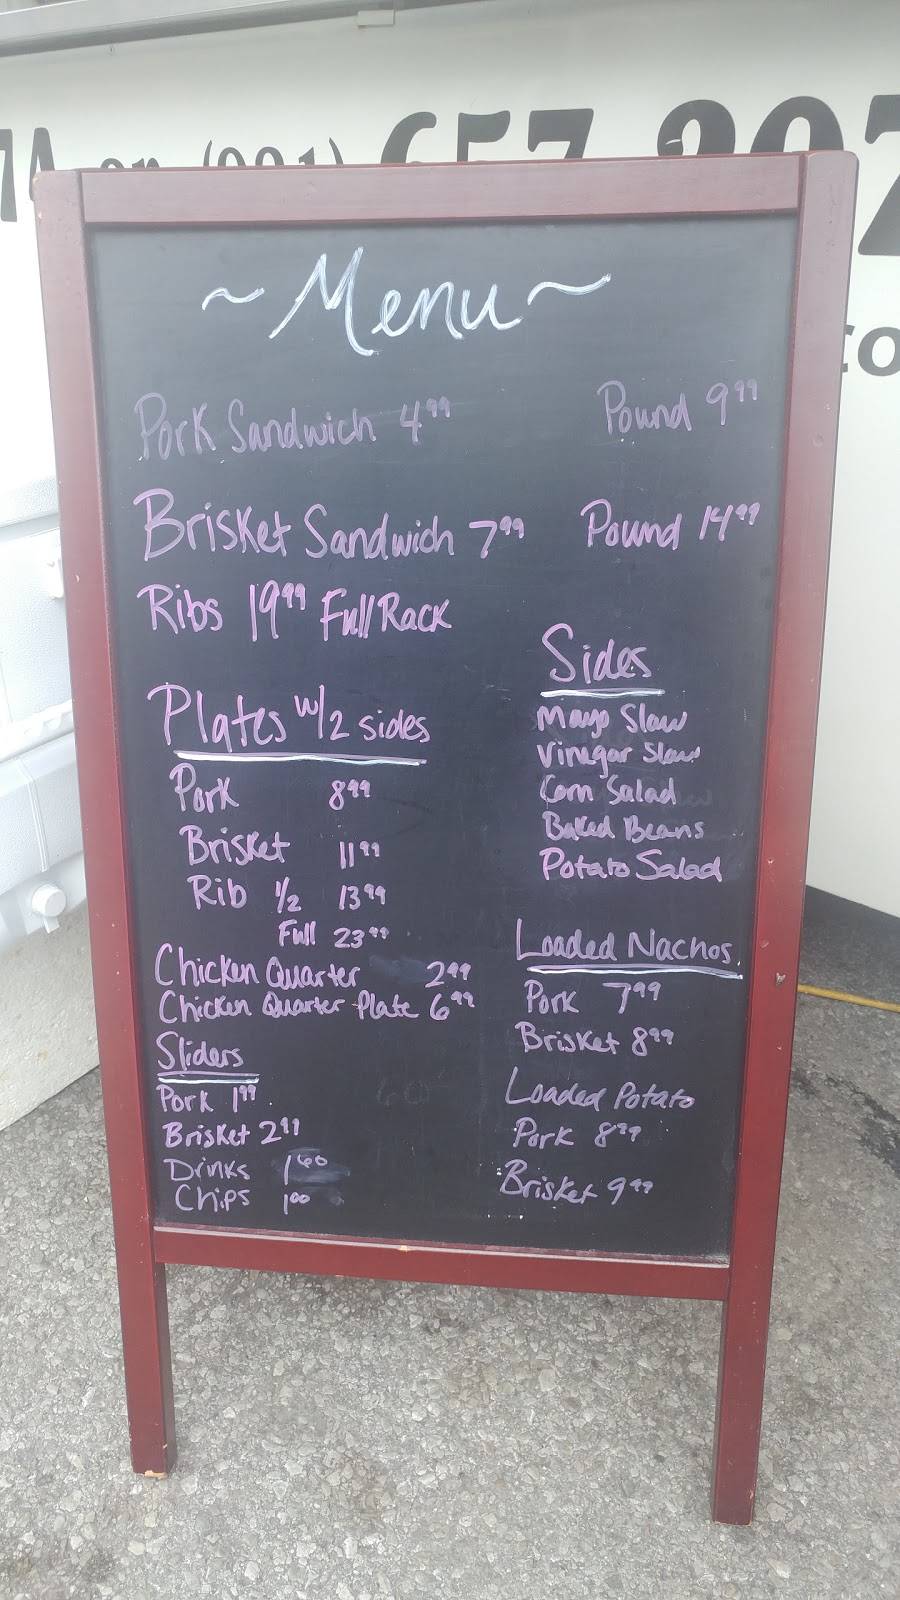 7A or (901) 657-207
co
~Menu~
Pork Sandwich 4.99 Pound 9.99
Brisket Sandwich 7.99 Pound 14.99
Ribs 19.99 Full Rack
Plates w/2 sides
Pork 8.99
Brisket 11.99
Rib 1/2 13.99
Full 23.99
Chicken Quarter 2.99
Chicken Quarter Plate 6.99
Sliders
Pork 1.99
Brisket 2.99
Drinks 1.00
Chips 1.00
Sides
Mayo Slaw
Vinegar Slaw
Corn Salad
Baked Beans
Potato Salad
Loaded Nachos
Pork 7.99
Brisket 8.99
Loaded Potato
Pork 8.99
Brisket 9.99